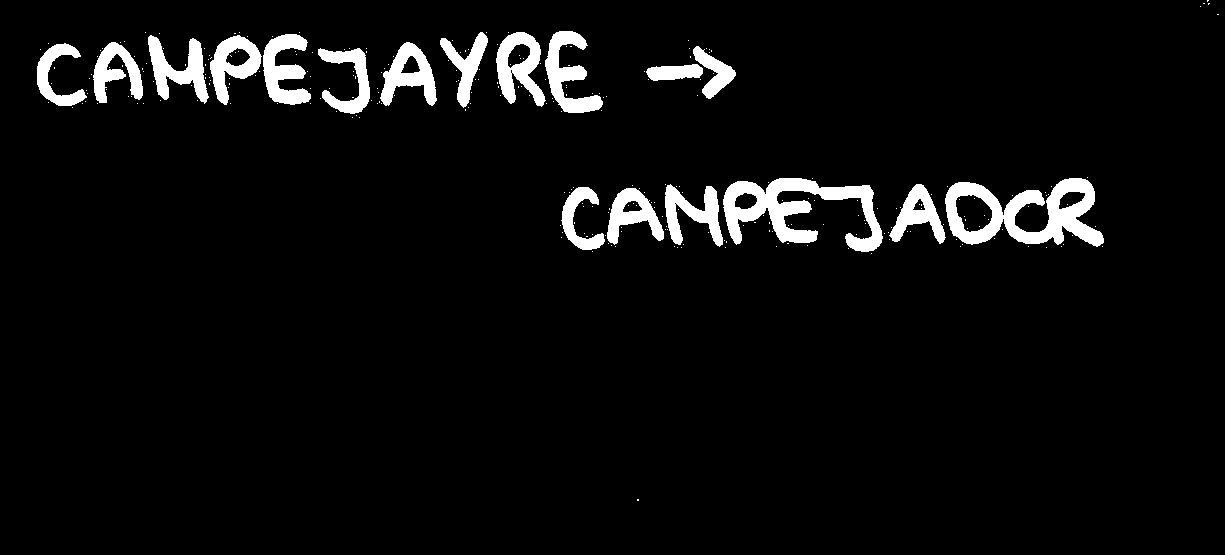 CAMPEJAYRE →
CAMPEJADOR